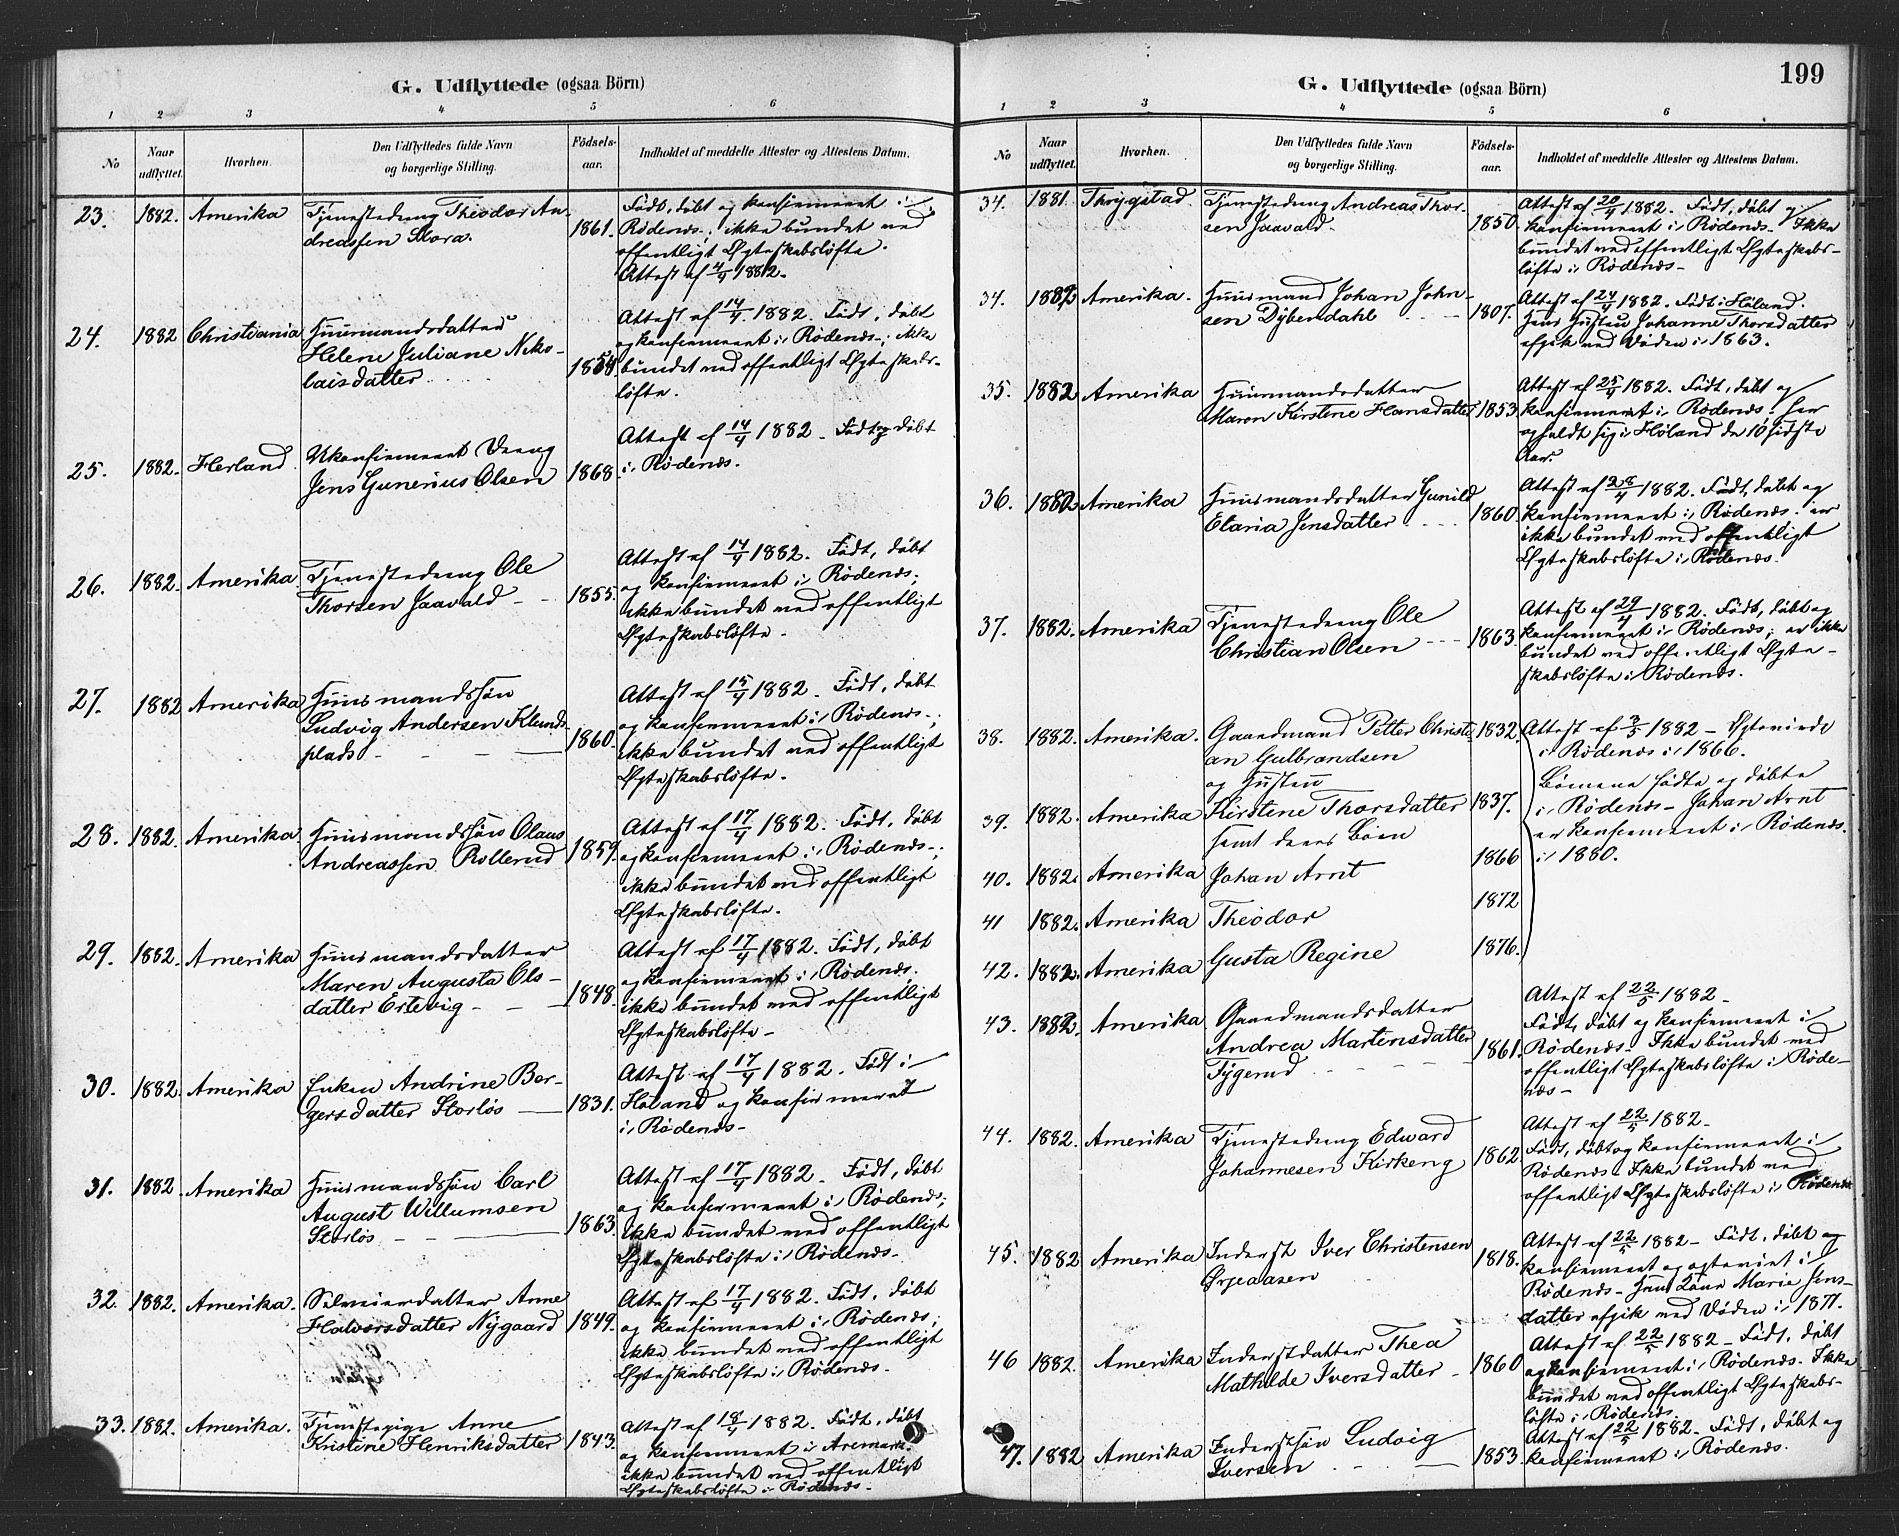 G. Udflyttede (ogsaa Börn)
1 2 3 4 5 6
No
Naar udflyttet.
Hvorhen.
Den Udflyttedes fulde Navn og borgerlige Stilling.
Födsels-aar.
Indholdet af meddelte Attester og Attestens Datum.
23. 1882. Amerika Tjenestedreng Theodor An-
dreassen Slora. 1861.
Født, døbt og konfirmeret i
Rødenæs; ikke bundet ved
offentligt Ægteskabsløfte.
Attest af 4/4 1882.
24. 1882 Christiania Huusmandsdatter
Helene Juliane Niko-
laisdatter 1854
Attest af 14/4 1882. Født, døbt
og konfirmeret i Rødenæs; ikke
bundet ved offentligt Ægteskabs-
løfte.
25. 1882. Herland. Ukonfirmeret Dreng
Jens Gunerius Olsen 1868.
Attest af 14/4 1882. Født og døbt
i Rødenæs.
26. 1882. Amerika Tjenestedreng Ole
Thorsen Jaavald 1855.
Attest af 14/4 1882. Født, døbt
og konfirmeret i Rødenæs;
ikke bundet ved offentligt
Ægteskabsløfte.
27. 1882 Amerika Huusmandssøn
Ludvig Andersen Klunds
plads 1860.
Attest af 15/4 1882. Født, døbt
og konfirmeret i Rødenæs;
ikke bundet ved offentligt
Ægteskabsløfte.
28. 1882. Amerika. Huusmandssøn Olaus
Andreassen Rollerud 1859.
Attest af 17/4 1882. Født, døbt
og konfirmeret i Rødenæs;
ikke bundet ved offentligt
Ægteskabsløfte.
29. 1882. Amerika Huusmandsdatter
Maren Augusta Ols-
datter Ertevig 1848.
Attest af 17/4 1882. Født, døbt
og konfirmeret i Rødenæs;
ikke bundet ved offentligt
Ægteskabsløfte.
30. 1882. Amerika Enken Andrine Ber-
gersdatter Storløs 1831.
Attest af 17/4 1882. Født i
Høland og konfirmeret
i Rødenæs.
31. 1882. Amerika Huusmandssøn Carl
August Willumsen
Storløs 1863.
Attest af 17/4 1882. Født, døbt
og konfirmeret i Rødenæs;
ikke bundet ved offentligt
Ægteskabsløfte i Rødenæs.
32. 1882. Amerika. Selveierdatter Anne
Halvorsdatter Nygaard 1849.
Attest af 17/4 1882. Født, døbt
og konfirmeret i Rødenæs;
ikke bundet ved offentligt
Ægteskabsløfte i Rødenæs.
33. 1882. Amerika. Tjenestepige Anne
Kristine Henriksdatter 1843.
Attest af 18/4 1882. Født, døbt
og konfirmeret i Aremark.
ikke bundet ved offentligt
Ægteskabsløfte i Rødenæs.
199
G. Udflyttede (ogsaa Börn)
1 2 3 4 5 6
No
Naar udflyttet.
Hvorhen.
Den Udflyttedes fulde Navn og borgerlige Stilling.
Födsels-aar.
Indholdet af meddelte Attester og Attestens Datum.
34. 1881. Thrygstad. Tjenestedreng Andreas Thor-
sen Jaavald. 1850.
Attest af 20/4 1882. Født, døbt og
konfirmeret i Rødenæs. Ikke
bundet ved offentligt Ægteskabs-
løfte i Rødenæs.
34. 1882 Amerika. Huusmand Johan John-
sen Dybendahl 1807.
Attest af 24/4 1882. Født i Høland.
Hans Hustru Johanne Thorsdatter
afgik ved Døden i 1863.
35. 1882 Amerika Huusmandsdatter
Maren Kirstene Hansdatter 1853
Attest af 25/4 1882. Født, døbt og
konfirmeret i Rødenæs. har
opholdt sig i Høland de 10 sidste
Aar.
36. 1882 Amerika Huusmandsdatter Gunild
Elaria Jensdatter 1860.
Attest af 28/4 1882. Født, døbt og
konfirmeret i Rødenæs. er
ikke bundet ved offentligt
Ægteskabsløfte i Rødenæs.
37. 1882. Amerika Tjenestedreng Ole
Christian Olsen 1863.
Attest af 29/4 1882. Født, døbt og
konfirmeret i Rødenæs; er ikke
bundet ved offentligt Ægte-
skabsløfte i Rødenæs.
38. 1882. Amerika. Gaardmand Petter Christi-
an Gulbrandsen
og Hustru 1832.
Attest af 3/5 1882 - Ægteviede
i Rødenæs i 1866.
Børnene fødte og døbte
i Rødenæs - Johan Arnt
er konfirmeret i Rødenæs
i 1880.
39. 1882. Amerika Kirstene Thorsdatter 1837.
samt deres Børn
40. 1882. Amerika Johan Arnt 1866
41 1882. Amerika Theodor 1872
42. 1882. Amerika Gusta Regine 1876.
43. 1882. Amerika Gaardmandsdatter
Andrea Martinsdatter
Tygerud 1861.
Attest af 22/5 1882 -
Født, døbt og konfirmeret i
Rødenæs - Ikke bundet ved
offentligt Ægteskabsløfte i Røde-
næs -
44. 1882. Amerika Tjenestedreng Edward
Johannesen Kirkeng 1862
Attest af 22/5 1882 -
Født, døbt og konfirmeret i
Rødenæs. Ikke bundet ved
offentligt Ægteskabsløfte i Rødenæs
45. 1882 Amerika Inderst Iver Christensen
Ørjeaasen 1818.
Attest af 22/5 1882 - Født, døbt og
konfirmeret og ægteviet i
Rødenæs - Hans Kone Marie Jens-
datter afgik ved Døden i 1877.
46 1882. Amerika Inderstdatter Thea
Mathilde Iversdatter 1860
Attest af 22/5 1882 - Født, døbt
og konfirmeret i Rødenæs. Ikke
bundet ved offentligt Ægteskabs-
løfte i Rødenæs.
47. 1882 Amerika Inderstsøn Ludvig
Iversen 1853
Attest af 22/5 1882. Født, døbt og
konfirmeret i Rødenæs.